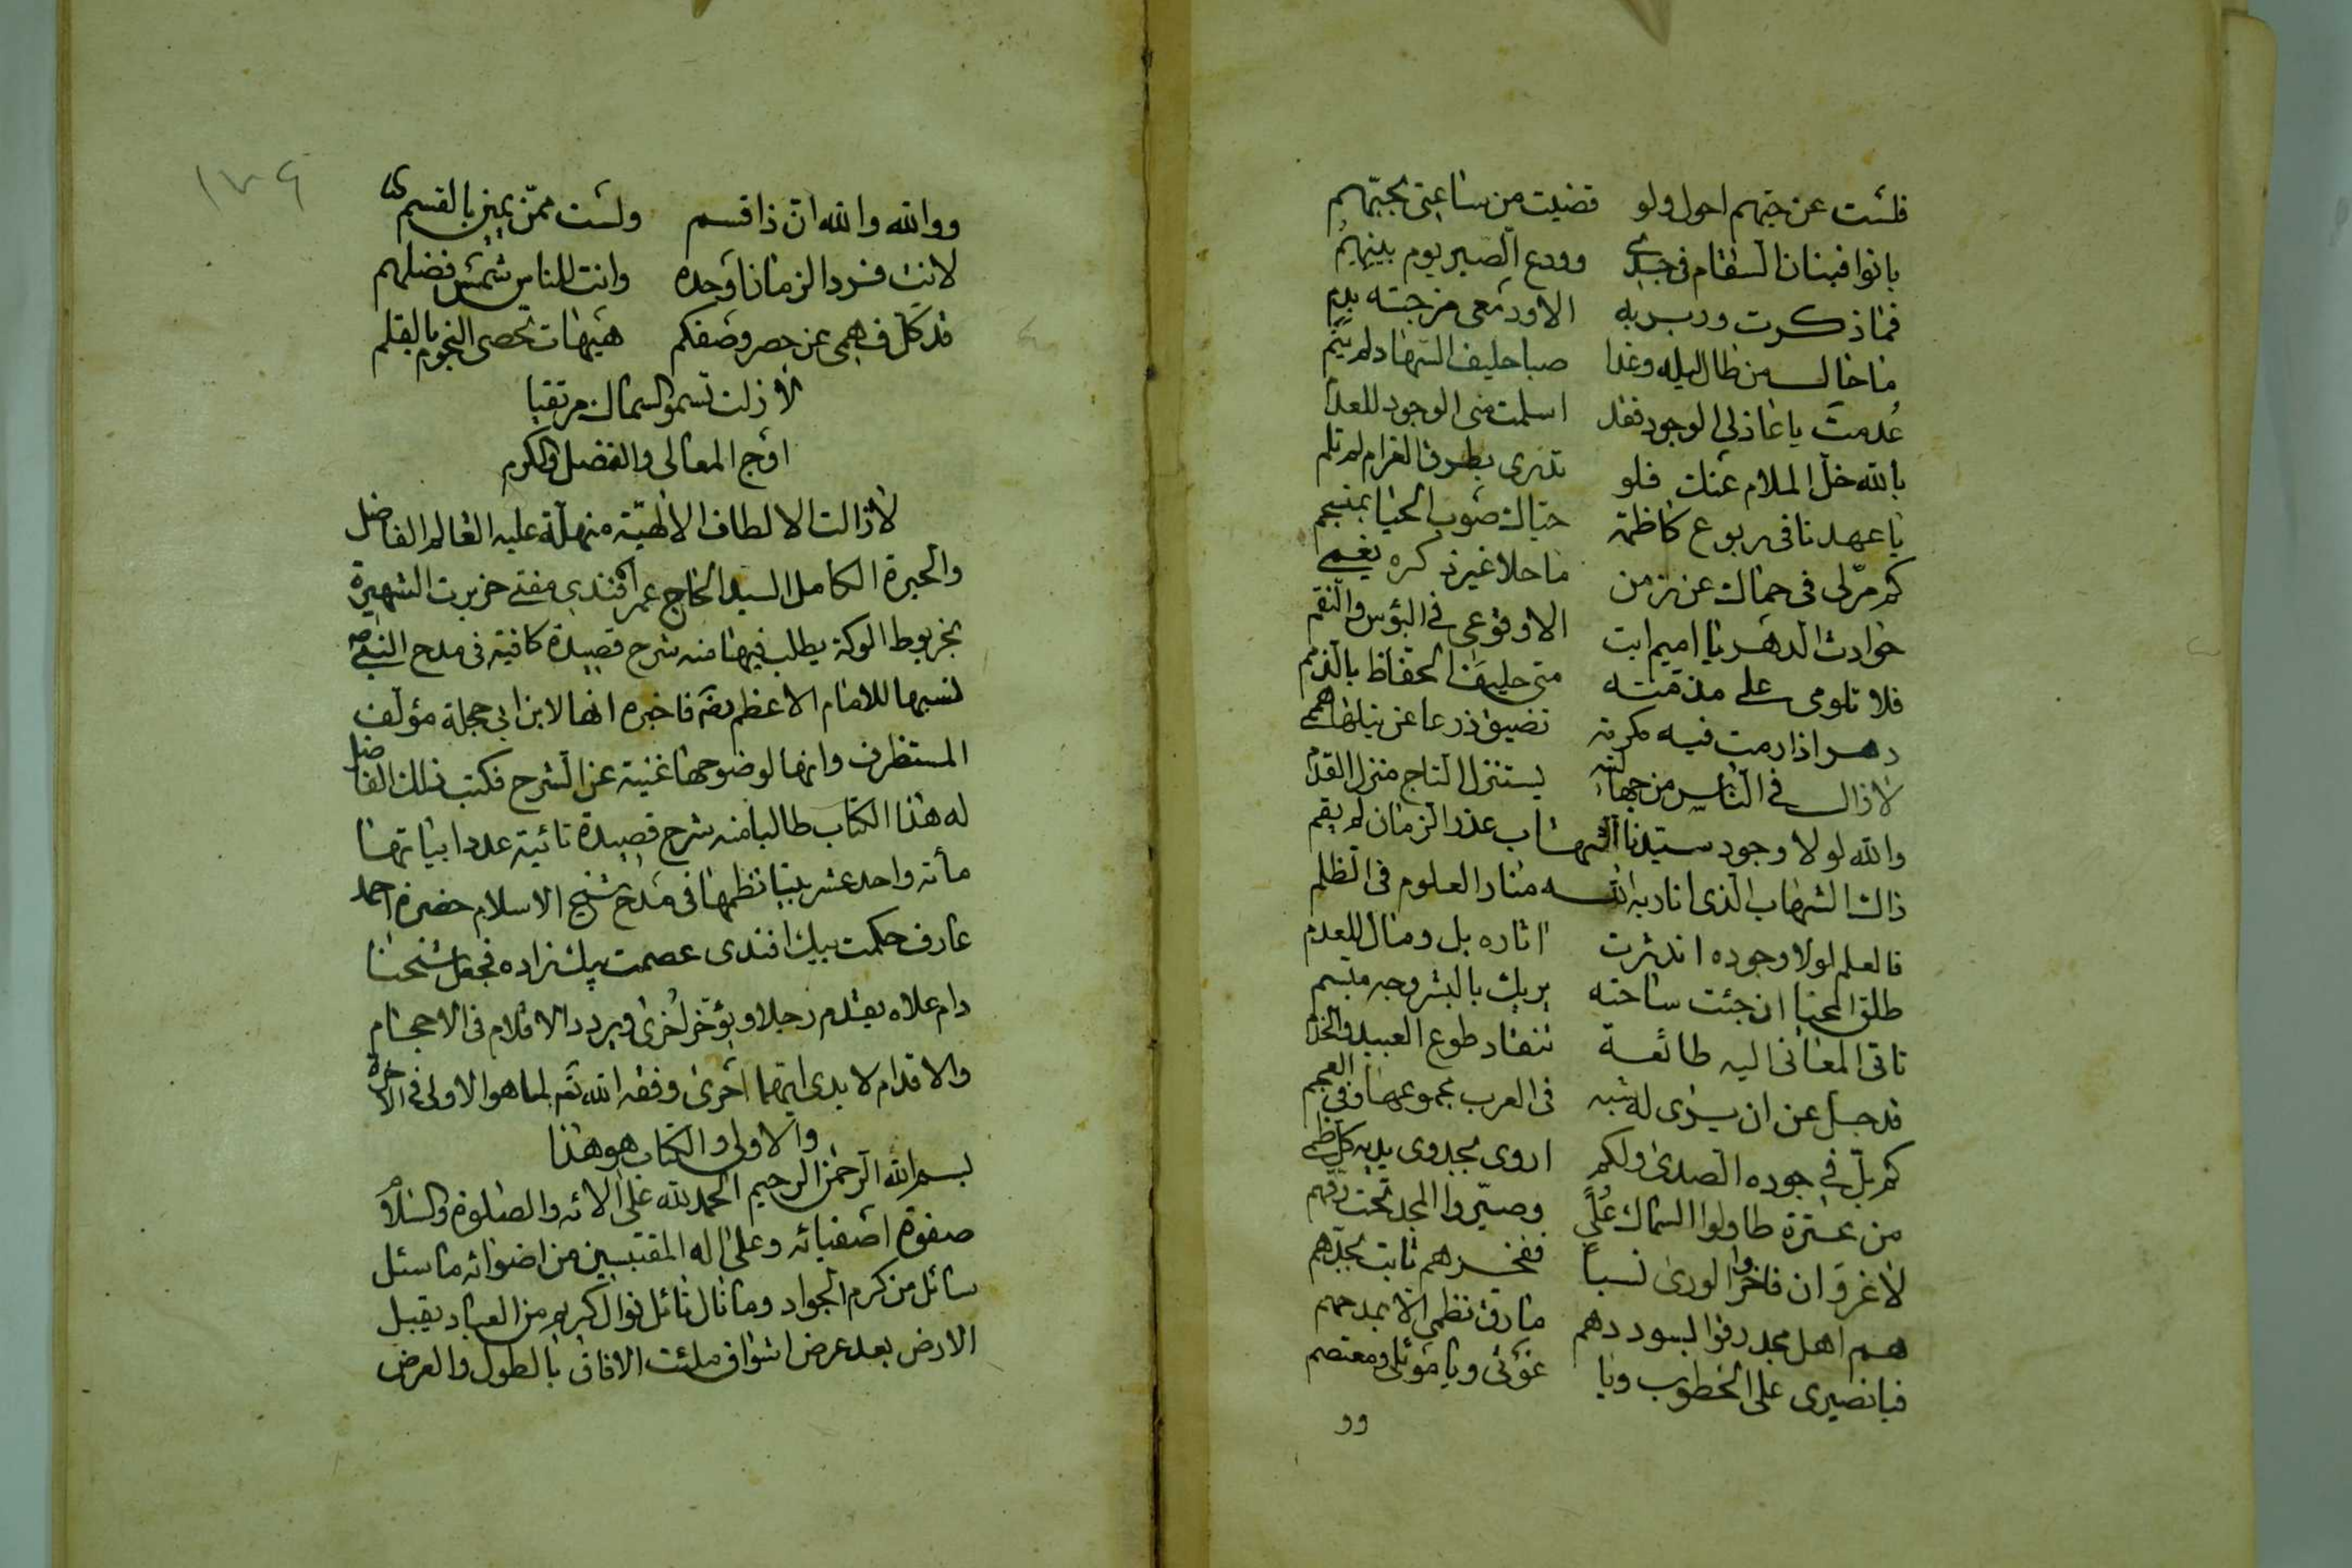 فلست عن حبهم احول ولو قضيت من ساعتي بحبّهم
بانوا فبنان السقام في جسدي وودع الصبر يوم بينهم
فما ذكرت ودبربه الا ودمعى مزجته بدم
ما حال من طال ليله وغدا صبا حليف السهاد لم ينم
عُدمتَ يا عاذلى الوجود فقد اسلمت منى الوجود للعدم
بالله خل الملام عنك فلو تدرى بطرف الغرام لم تلم
يا عهدنا في ربوع كاظمة حياك صوب الحيا بمنسجم
كم مرّ لى فى حماك عن زمن ما حلا غير ذكره بفمي
حوادث الدهر يا اميم ابت الا وقوعى في البؤس والنقم
فلا تلومى على مذمته متى حليف الحفاظ بالذمم
دهر اذا رمت فيه مكرمة تضيق ذرعا عن نيلها هممي
لا زال في الناس من جهالته يستنزل التاج منزل القدم
والله لولا وجود سيدنا الشهاب عذر الزمان لم يقم
ذاك الشهاب الذى انار به الله منار العلوم فى الظلم
فالعلم لولا وجوده اندثرت اثاره بل ومال للعدم
طلق المحيا ان جئت ساحته يريك بالبشر وجه مبتسم
تاتى المعانى اليه طائعة تنقاد طوع العبيد والخدم
قد جل عن ان يرى له شبه فى العرب مجموعها وفى العجم
كم بلّ في جوده الصدى ولكم اروى بجدوى يديه كل ظمي
من عترة طاولوا السماك عُلىً وصيّروا المجد تحت رقهم
لا غرو ان فاخروا الورى نسبا ففخرهم ثابت بجدّهم
هم اهل مجد رقوا بسوددهم ما رق نظمى الا بمدحهم
فيا نصيرى على الخطوب ويا غوثى ويا موئلى ومعتصم
وو
١٧٩
ووالله والله ان ذا قسم ولست ممّن يمين بالقسم
لانت فرد الزمان اوحده وانت للناس شمس فضلهم
قد كلّ فهمى عن حصر وصفكم هيهات تحصى النجوم بالقلم
لا زلت تسمو السماك مرتقيا
اوج المعالى والفضل والكرم
لا زالت الالطاف الالهيّة منهلّة عليه العالم الفاضل
والحبرة الكامل السيد الحاج عمر افندى مفتى خربرت الشهيرة
بخربوط الوكة يطلب فيها منه شرح قصيدة كافية فى مدح النبى
نسبها للامام الاعظم فاخبره انها لابن ابى حجلة مؤلف
المستظرف وانها لوضوحها غنية عن الشرح فكتب ذلك الفاضل
له هذا الكتاب طالبا منه شرح قصيدة تائية عدد ابياتها
مأته واحد عشر بيتا نظمها فى مدح شيخ الاسلام حضرة احمد
عارف حكمت بيك افندى عصمت بيك زاده فجعل شيخنا
دام علاه يقدم رجلا ويؤخر اخرى ويردد الاقلام فى الاحجام
والاقدام لا يدى ايهما احرى وفقه الله تعم لما هو الاولى فى الاخرة
والاولى والكتاب هو هذا
بسم الله الرحمن الرحيم الحمد لله على الائه والصلوة والسلام
صفوة اصفيائه وعلى اله المقتبسين من اضوائه ما سئل
سائل من كرم الجواد وما نال نائل نوال كريم من العباد يقبل
الارض بعد عرض اشواق ملئت الافاق بالطول والعرض